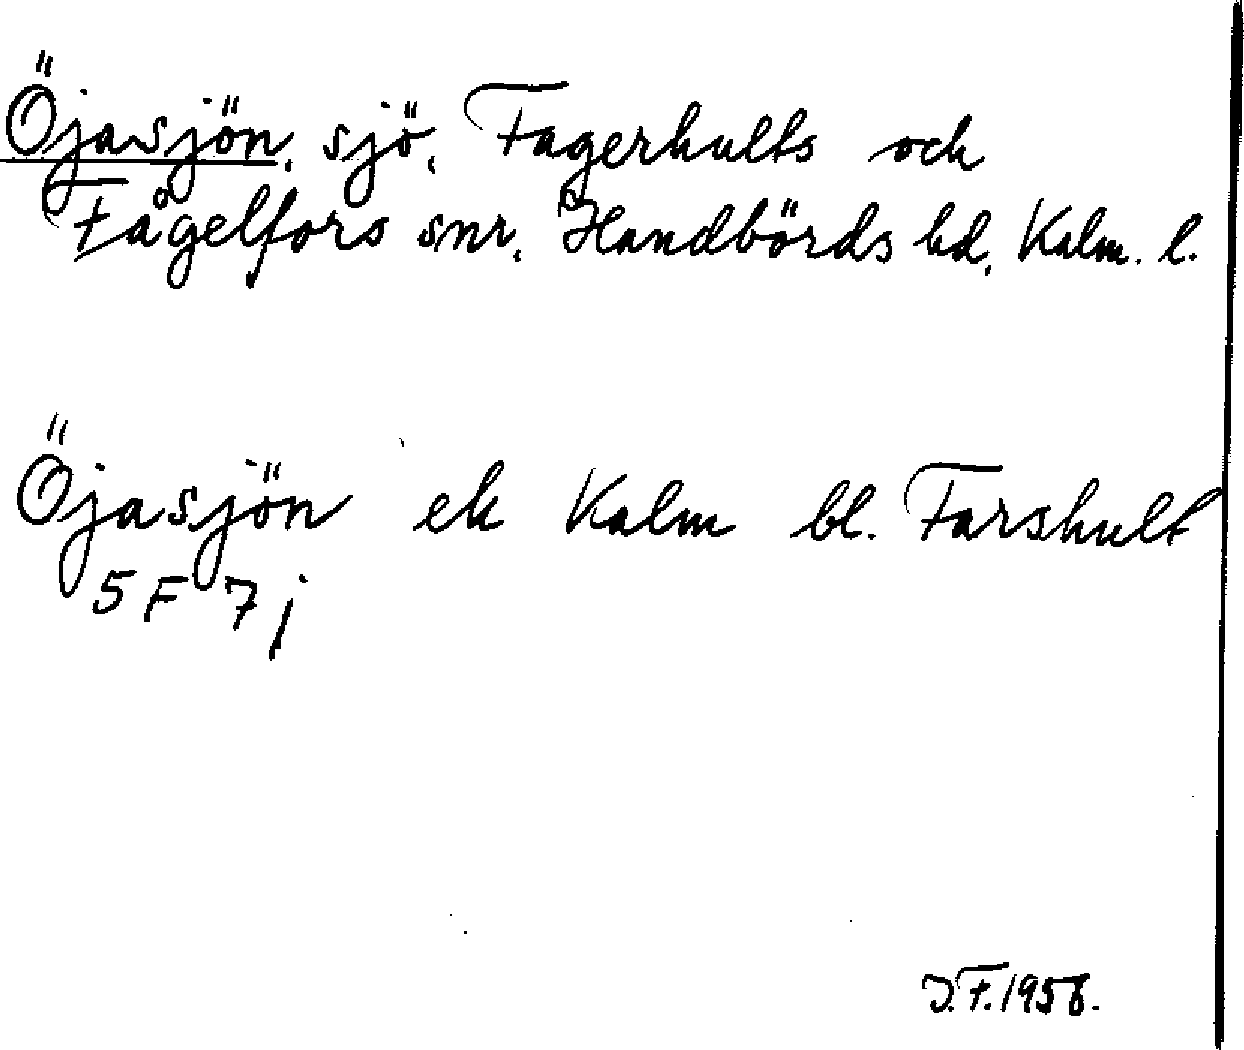 Öjasjön, sjö, Fagerhults och
Fågelfors snr, Handbörds hd, Kalm. l.
Öjasjön ek Kalm bl. Farshult
5 F 7 j
J.F. 1958.